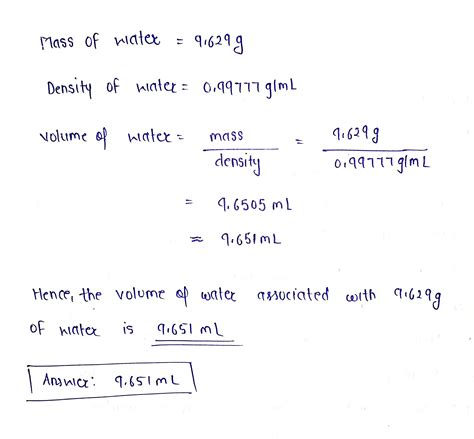 Mass of water = 9.629 g
Density of water = 0.99777 g/mL
Volume of water = mass / density = 9.629 g / 0.99777 g/mL
= 9.6505 mL
≈ 9.651 mL
Hence, the volume of water associated with 9.629g
of water is 9.651 mL
Answer: 9.651 mL